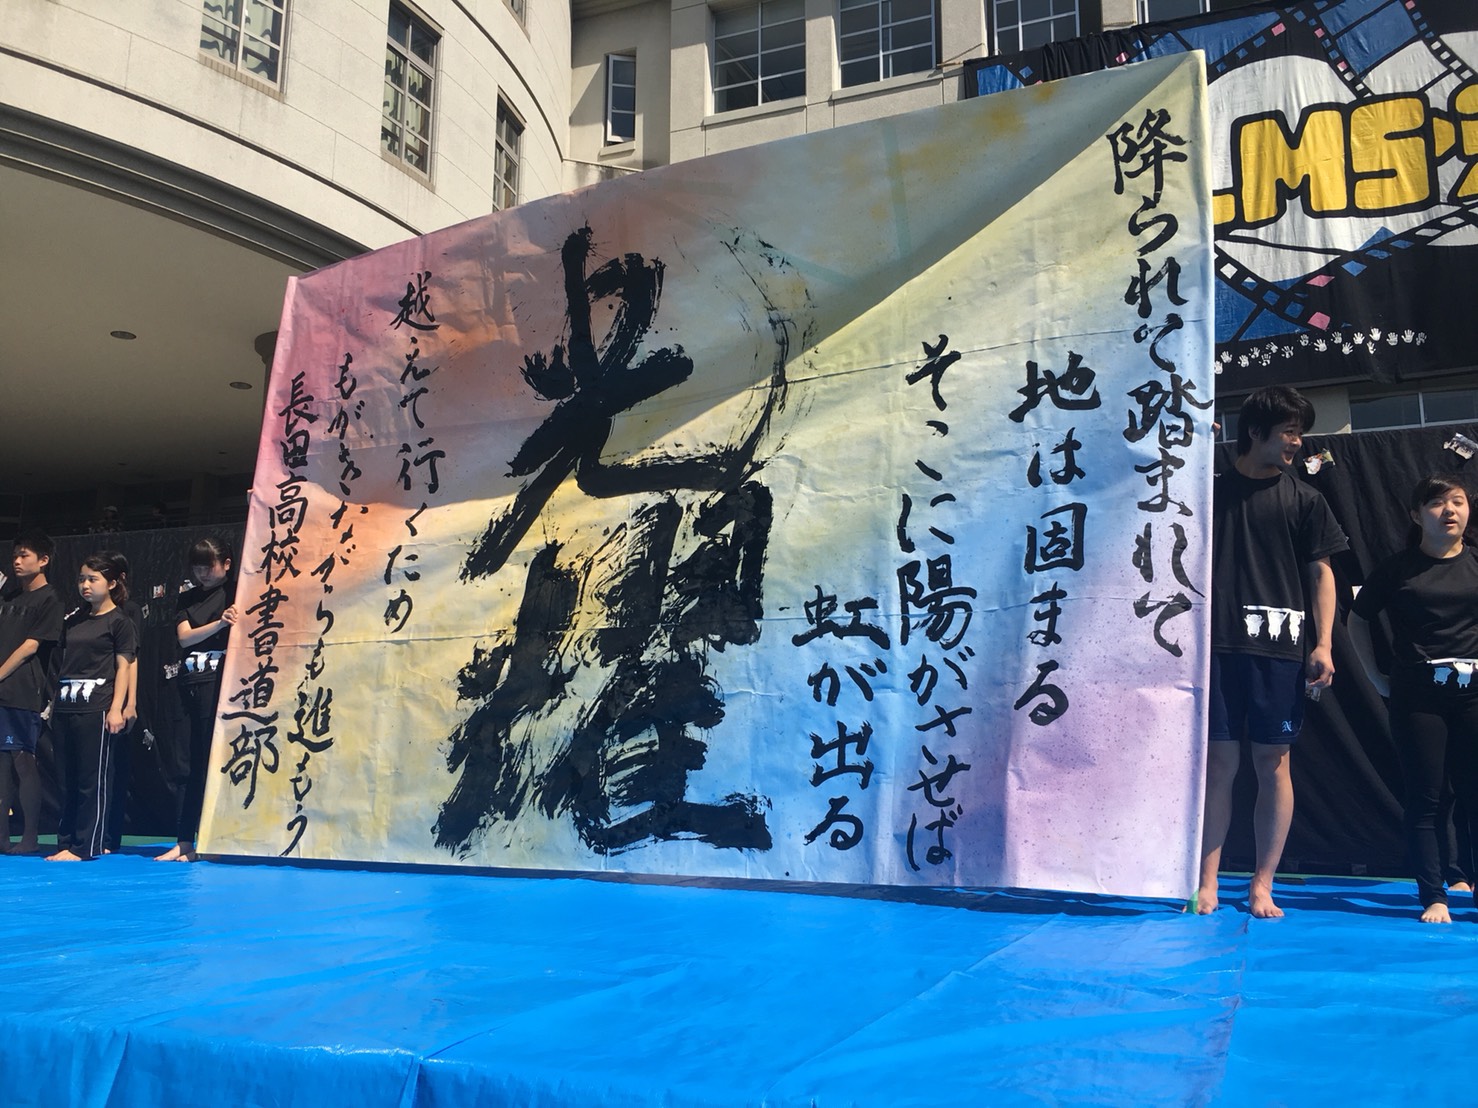 降られて踏まれて
地は固まる
そこに陽がさせば
虹が出る
光
越えて行くため
もがきながらも進もう
長田高校書道部
LMS'
N